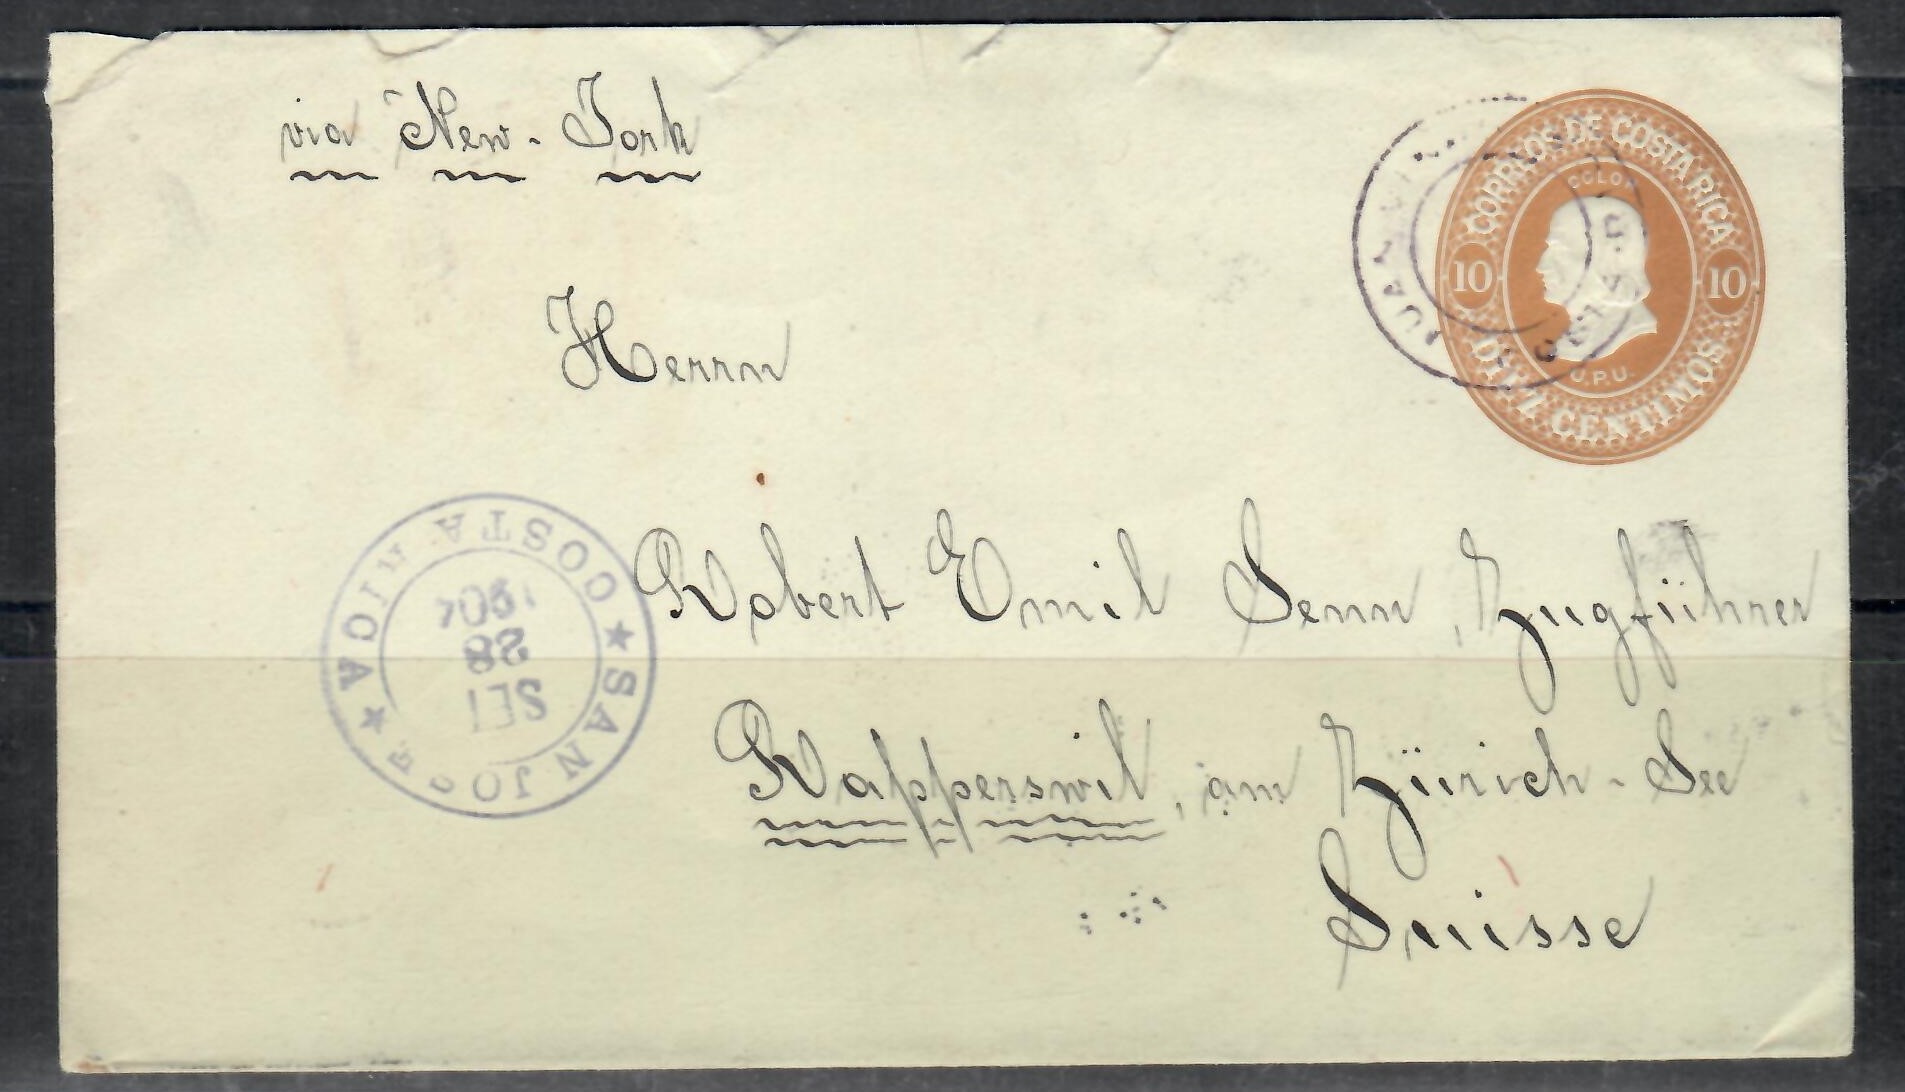 via New-York
CORREOS DE COSTA RICA
COLON
10 10
U.P.U.
DIEZ CENTIMOS
Herrn
Robert Emil Senn, Zugführer
Rapperswil, am Zürich-See
Suisse
★ SAN JOSE ★ COSTA RICA
SET
28
190